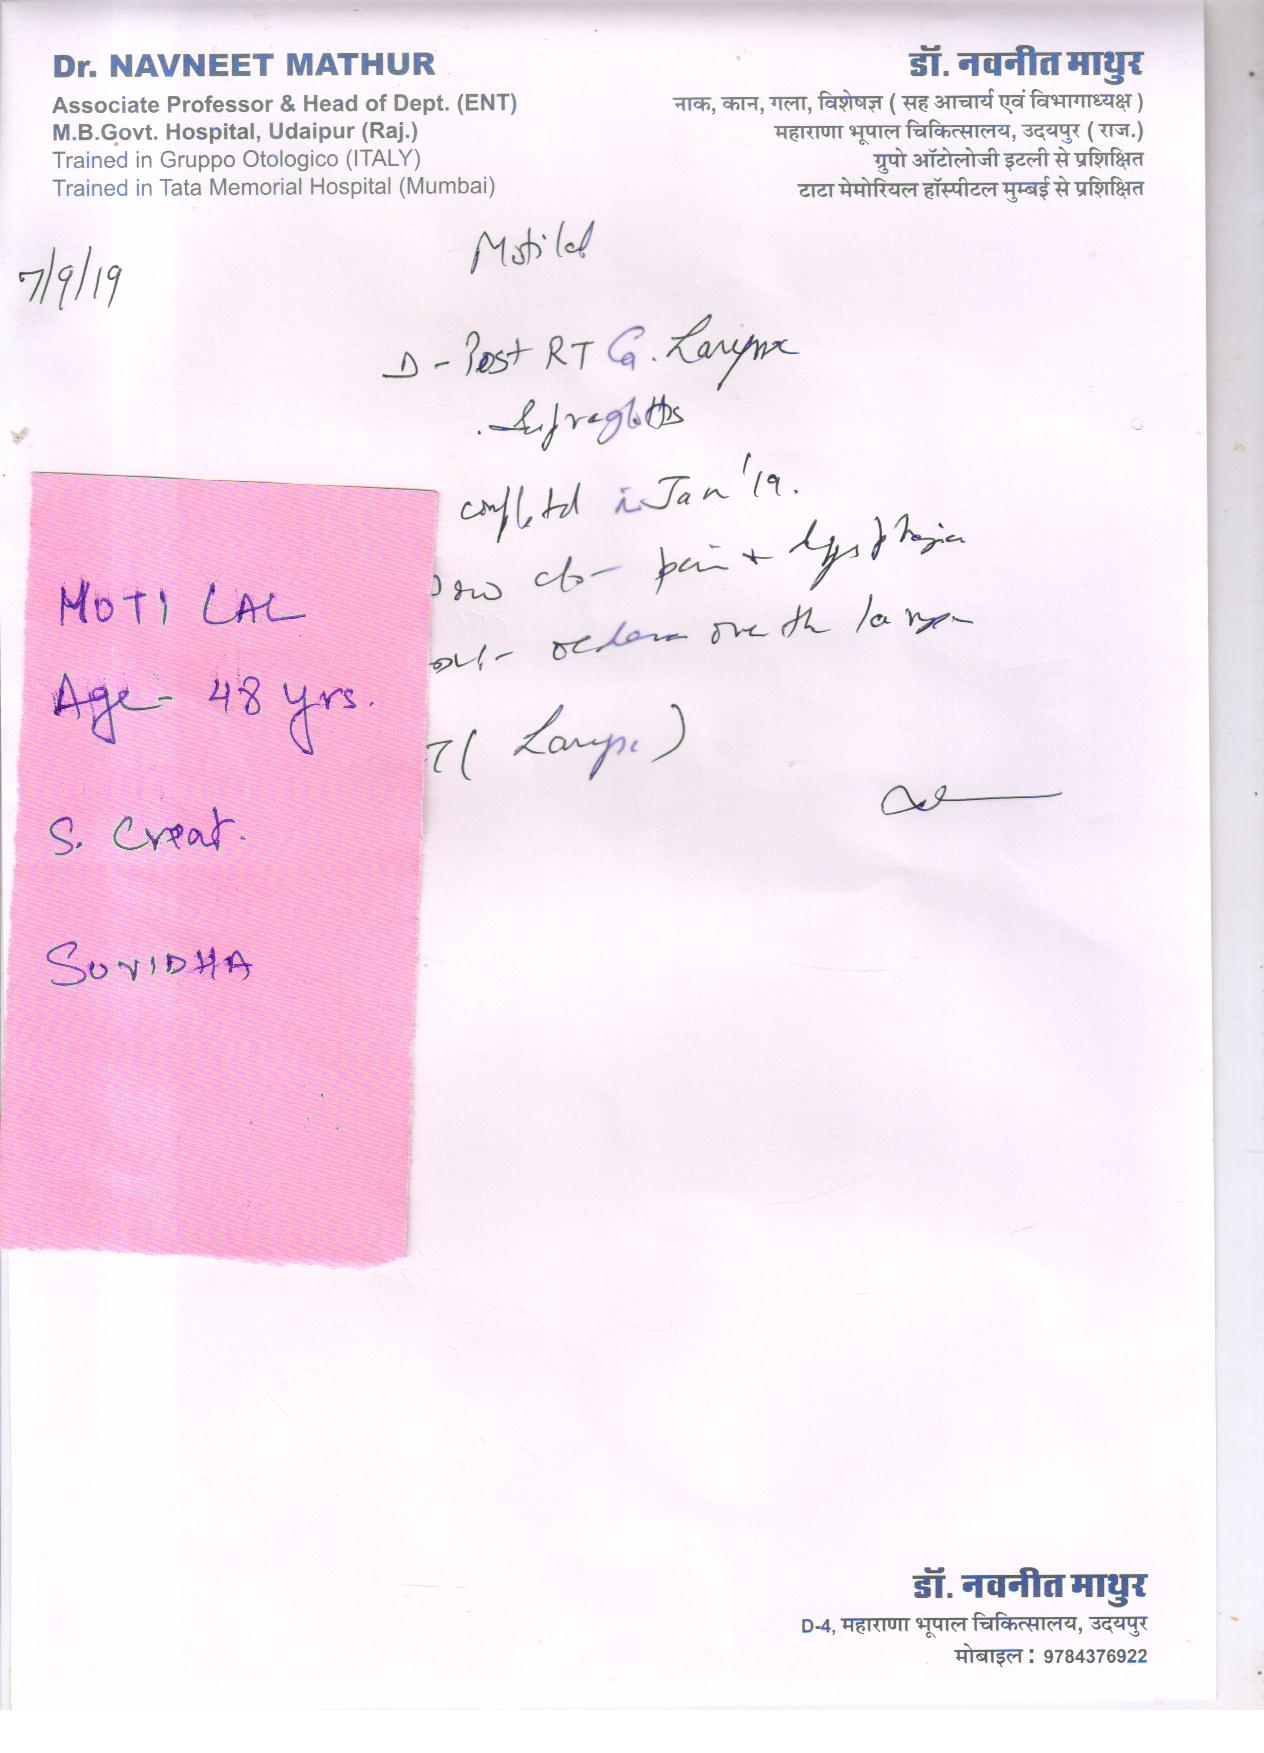 Dr. NAVNEET MATHUR
Associate Professor & Head of Dept. (ENT)
M.B.Govt. Hospital, Udaipur (Raj.)
Trained in Gruppo Otologico (ITALY)
Trained in Tata Memorial Hospital (Mumbai)
डॉ. नवनीत माथुर
नाक, कान, गला, विशेषज्ञ ( सह आचार्य एवं विभागाध्यक्ष )
महाराणा भूपाल चिकित्सालय, उदयपुर ( राज.)
ग्रुपो ऑटोलोजी इटली से प्रशिक्षित
टाटा मेमोरियल हॉस्पीटल मुम्बई से प्रशिक्षित
Motilal
7/9/19
D - Post RT Ca. Larynx
Supraglottis
completed in Jan '19.
c/o - pain + dysphagia
oedema over the larynx
( Larynx )
MOTI LAL
Age - 48 yrs.
S. Creat.
SUVIDHA
डॉ. नवनीत माथुर
D-4, महाराणा भूपाल चिकित्सालय, उदयपुर
मोबाइल : 9784376922